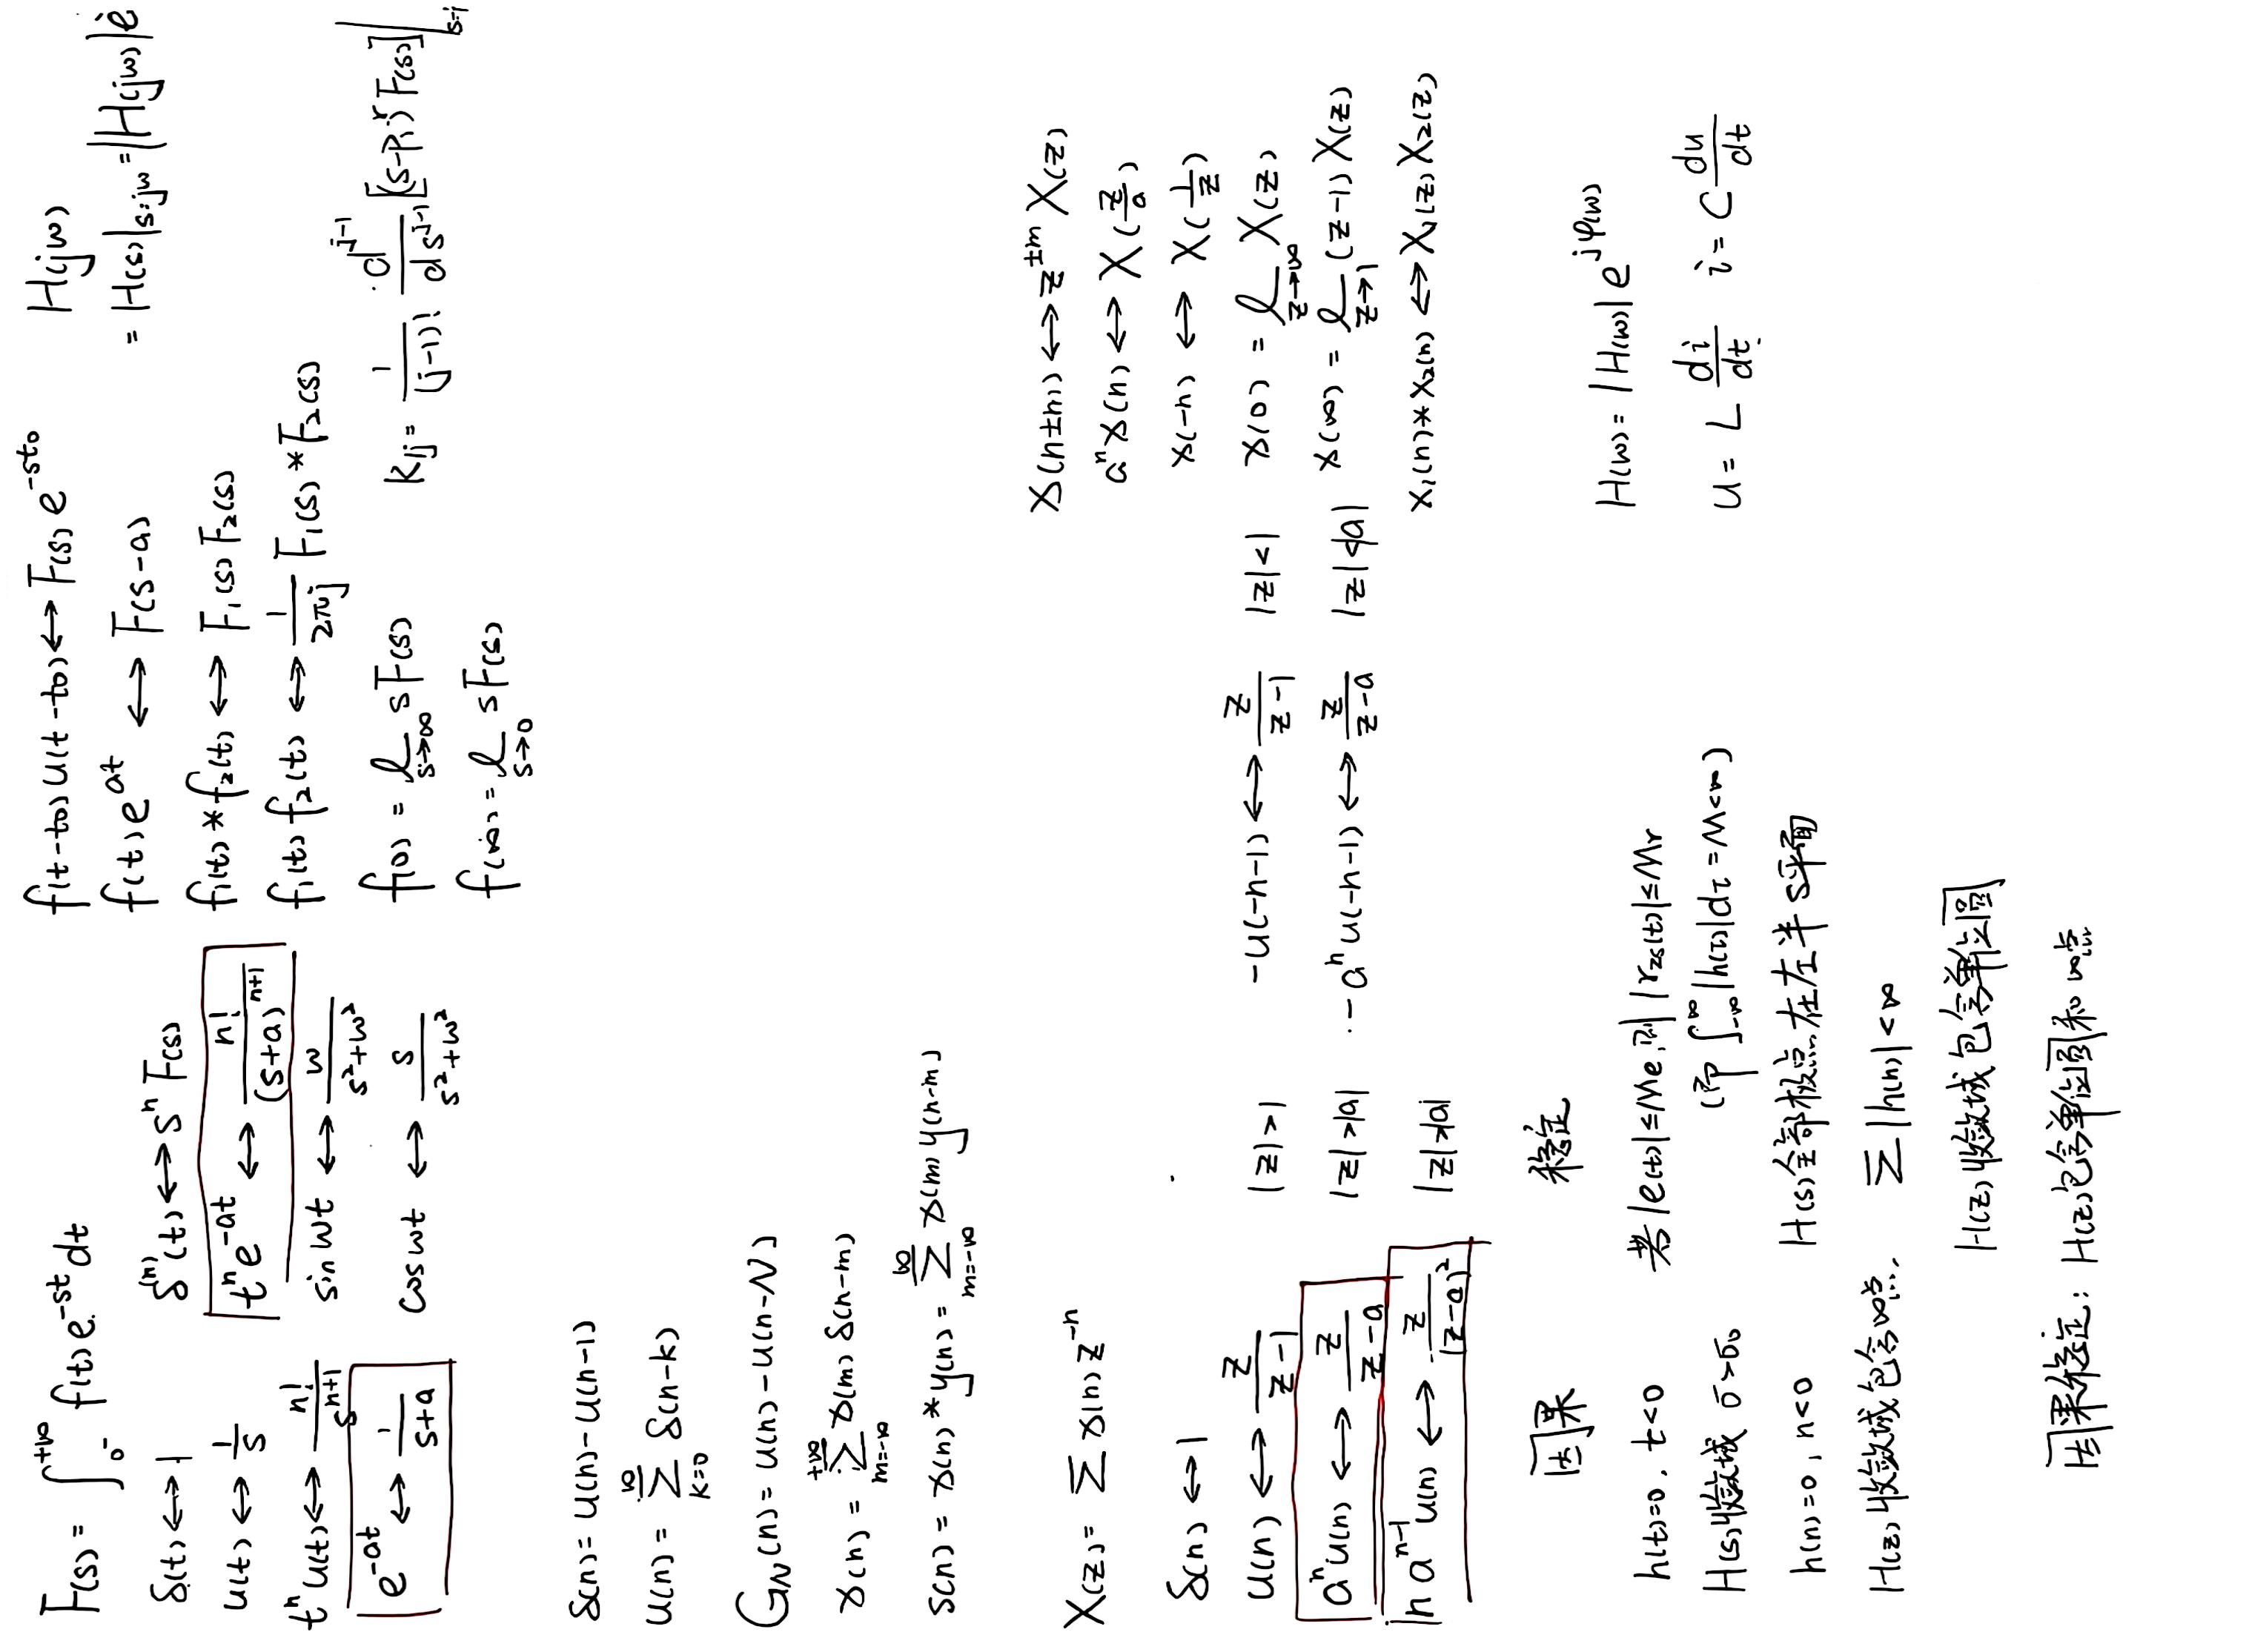 F(s) = ∫_{0-}^{+∞} f(t) e^{-st} dt
δ(t) ↔ 1
u(t) ↔ 1/s
t^n u(t) ↔ n!/s^{n+1}
e^{-at} ↔ 1/(s+a)
δ^{(n)}(t) ↔ s^n F(s)
t^n e^{-at} ↔ n!/(s+a)^{n+1}
sin wt ↔ w/(s²+w²)
cos wt ↔ s/(s²+w²)
f(t-t0) u(t-t0) ↔ F(s) e^{-st0}
f(t) e^{at} ↔ F(s-a)
f1(t) * f2(t) ↔ F1(s) F2(s)
f1(t) f2(t) ↔ 1/(2πj) F1(s) * F2(s)
f(0) = l_{s→∞} sF(s)
f(∞) = l_{s→0} sF(s)
H(jw)
= H(s)|s=jw = |H(jw)| e
Kij = 1/(j-1)! · d^{j-1}/ds^{j-1} [(s-Pi)^r F(s)]|s=i
δ(n) = u(n) - u(n-1)
u(n) = Σ_{k=0}^{∞} δ(n-k)
G_N(n) = u(n) - u(n-N)
x(n) = Σ_{m=-∞}^{+∞} x(m) δ(n-m)
s(n) = x(n) * y(n) = Σ_{m=-∞}^{∞} x(m) y(n-m)
X(z) = Σ x(n) z^{-n}
δ(n) ↔ 1
u(n) ↔ z/(z-1) |z|>1
a^n u(n) ↔ z/(z-a) |z|>|a|
n a^{n-1} u(n) ↔ z/(z-a)² |z|>|a|
-u(-n-1) ↔ z/(z-1) |z|<1
-a^n u(-n-1) ↔ z/(z-a) |z|<|a|
x(n±m) ↔ z^{±m} X(z)
a^n x(n) ↔ X(z/a)
x(-n) ↔ X(1/z)
x(0) = l_{z→∞} X(z)
x(∞) = l_{z→1} (z-1) X(z)
x1(n) * x2(n) ↔ X1(z) X2(z)
因果
h(t)=0, t<0
H(s)收敛域 σ>σ0
h(n)=0, n<0
H(z)收敛域包含∞点
稳定
若|e(t)|≤Me, 则|rzs(t)|≤Mr
(即 ∫_{-∞}^{∞} |h(τ)|dτ = M<∞)
H(s)全部极点在左半s平面
Σ|h(n)|<∞
H(z)收敛域包含单位圆
因果稳定: H(z)包含单位圆和∞点
H(w) = |H(w)| e^{jφ(w)}
u = L di/dt i = C du/dt